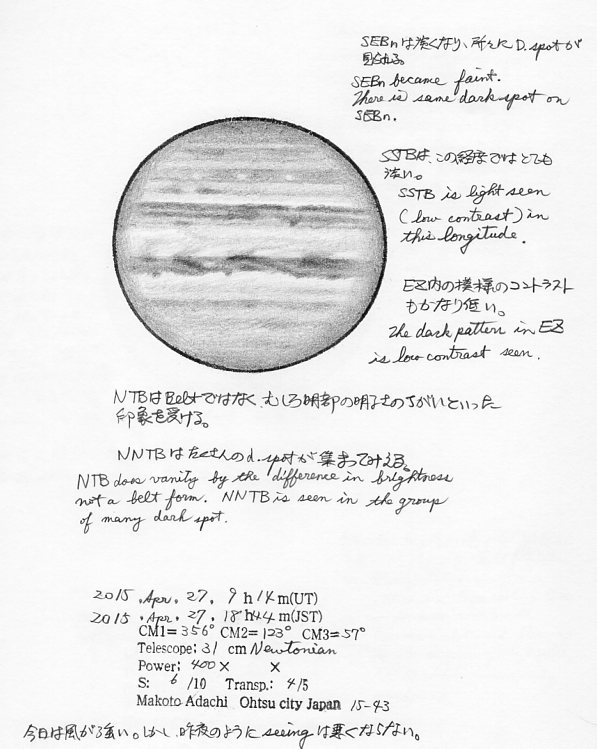 SEBnは淡くなり、所々に D. spotが
見られる。
SEBn became faint.
There is same dark spot on
SEBn.
SSTBは、この経度ではとても
淡い。
SSTB is light seen
(low contrast) in
this longitude.
EZ内の模様のコントラスト
もかなり低い。
The dark pattern in EZ
is low contrast seen.
NTBはBeltではなく、むしろ明部の明るさのちがいといった
印象を受ける。
NNTBはたくさんのd. spotが集まってみえる。
NTB does vanity by the difference in brightness
not a belt form. NNTB is seen in the group
of many dark spot.
2015 . Apr. 27, 9 h 14 m(UT)
2015 . Apr. 27, 18 h 44 m(JST)
CM1= 356° CM2= 123° CM3= 57°
Telescope: 31 cm Newtonian
Power: 400 × ×
S: 6 /10 Transp.: 4/5
Makoto Adachi Ohtsu city Japan 15-43
今日は風が強い。しかし、昨夜のように seeing は悪くならない。